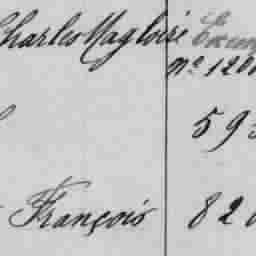 Charles Magloire
n° 120
593
François 820